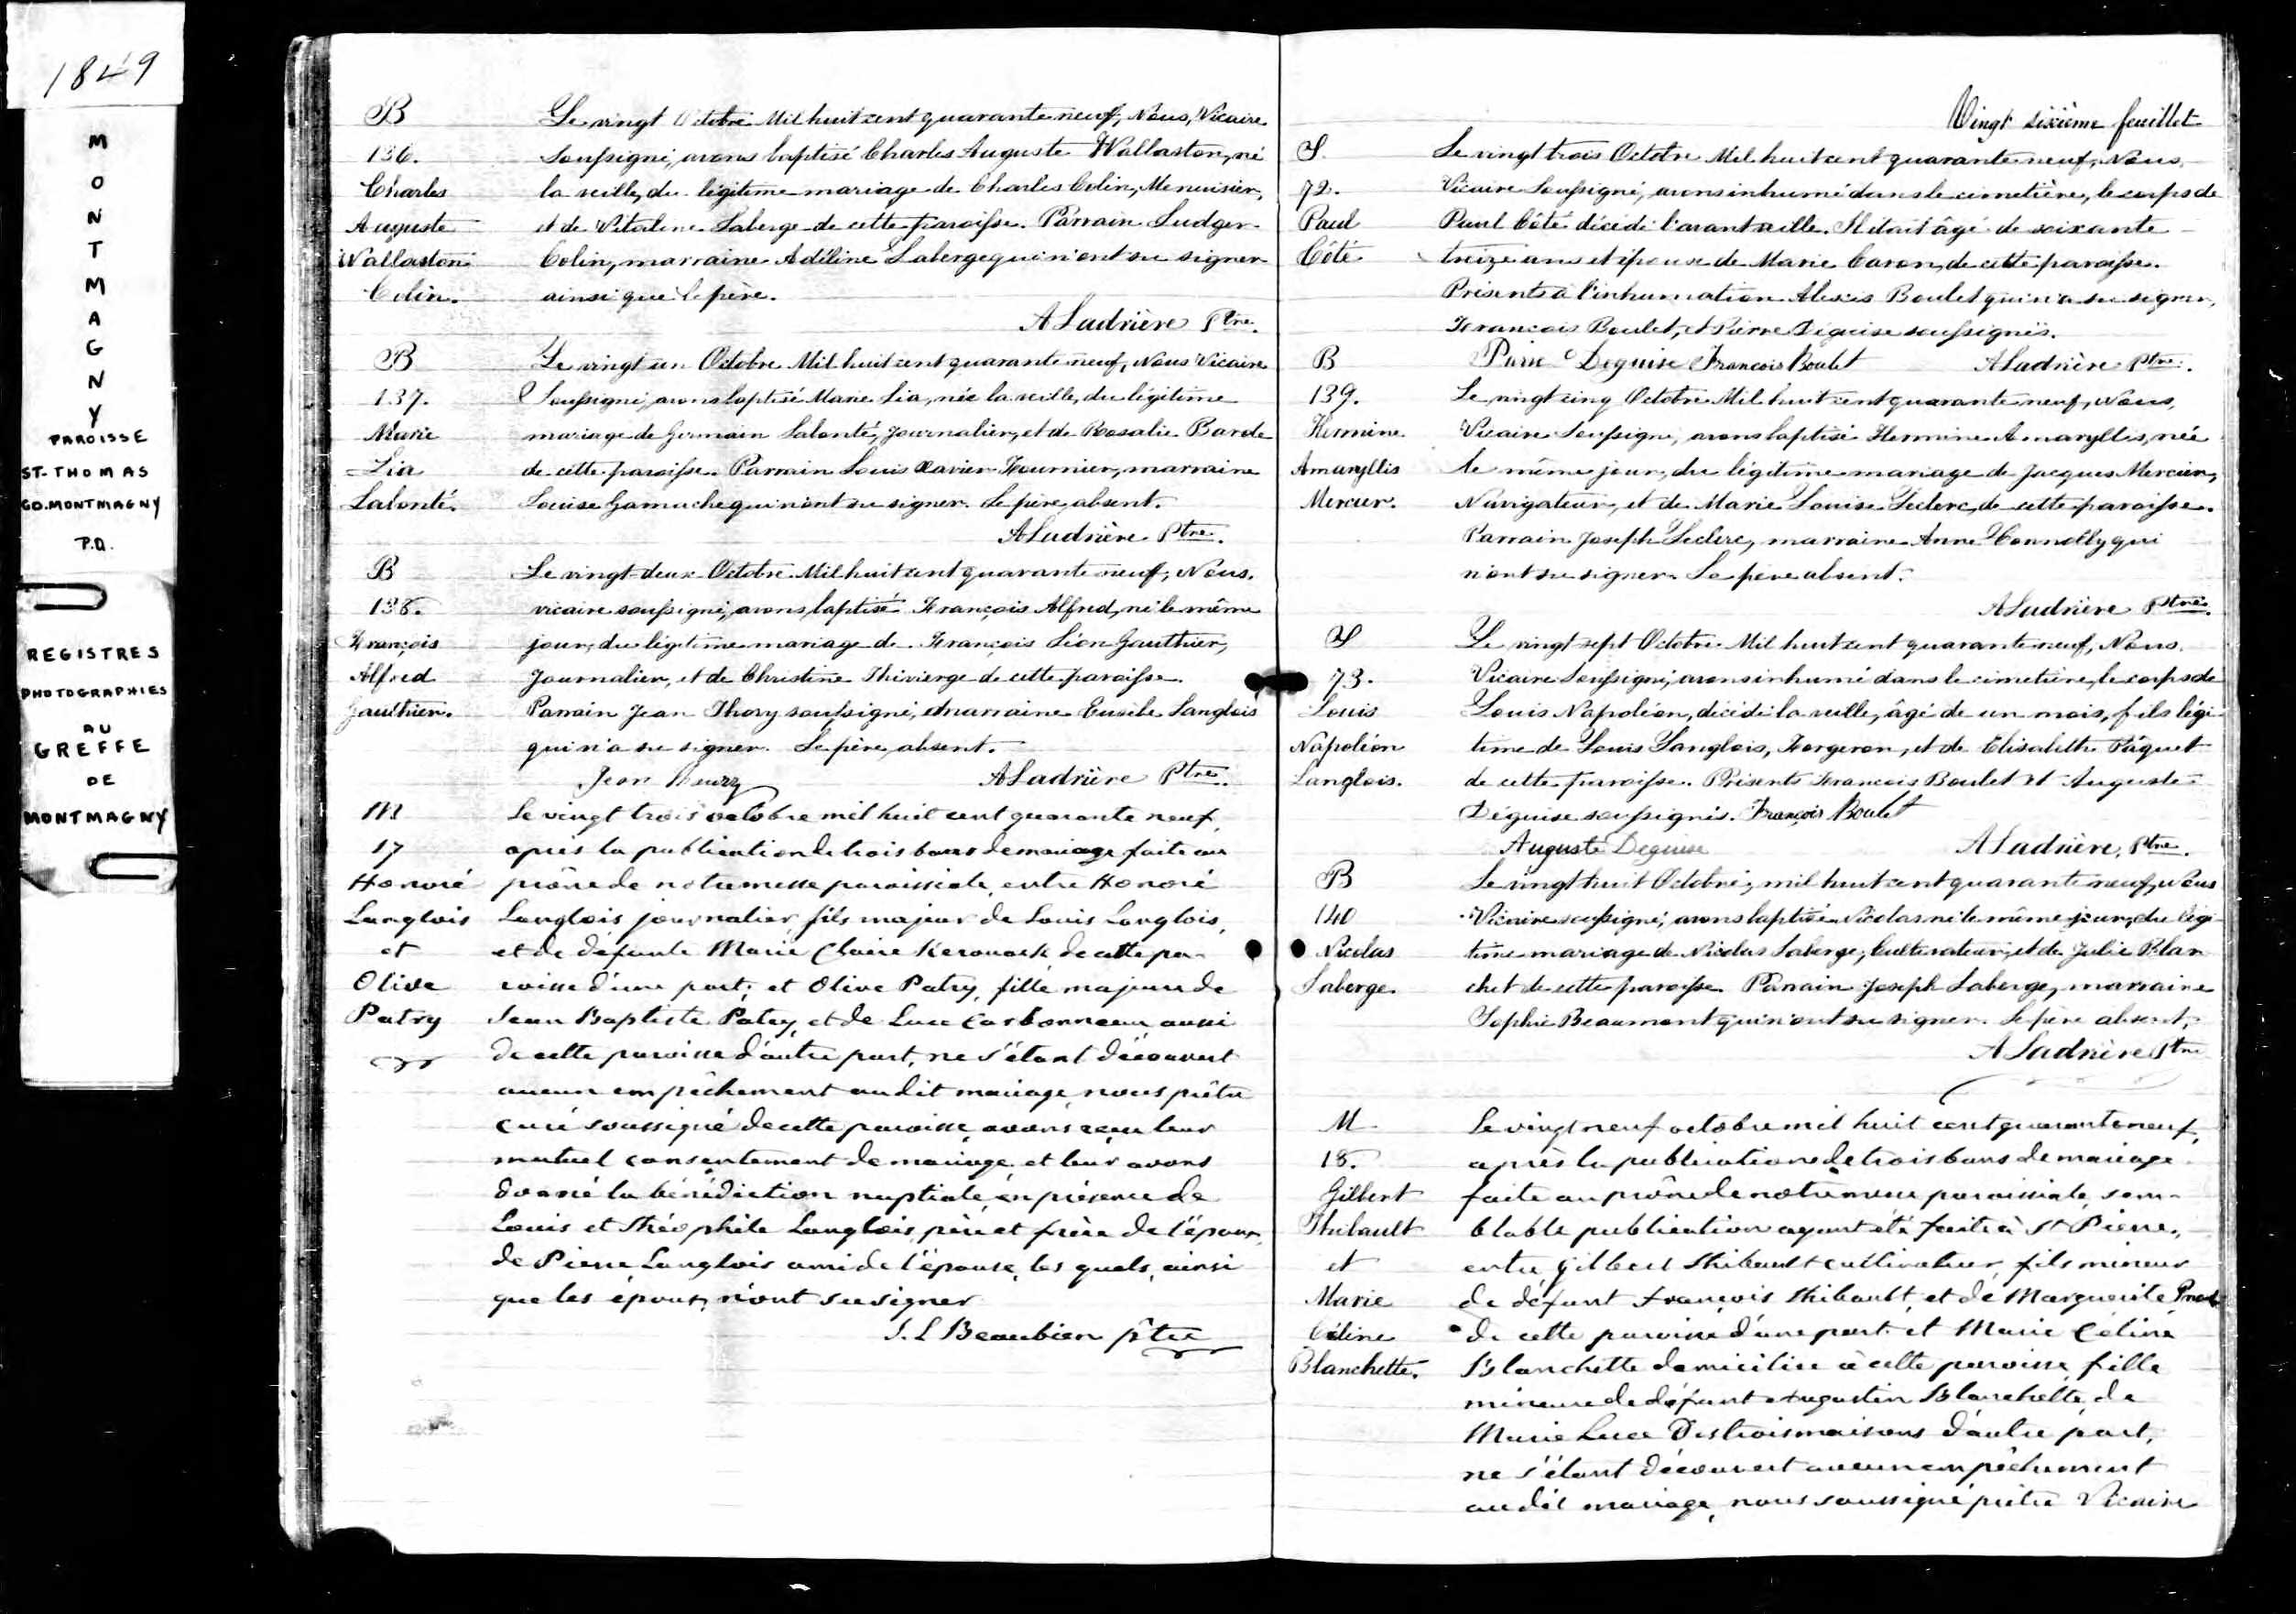 1849
MONTMAGNY
PAROISSE
ST-THOMAS
CO. MONTMAGNY
P.Q.
REGISTRES
PHOTOGRAPHIES
AU
GREFFE
DE
MONTMAGNY
B
136.
Charles
Auguste
Wallaston
Colin.
Le vingt Octobre Mil huit cent quarante neuf, Nous, Vicaire
Soussigné, avons baptisé Charles Auguste Wallaston, né
la veille, du légitime mariage de Charles Colin, Menuisier,
et de Vitaline Laberge de cette paroisse. Parrain Ludger
Colin, marraine Adéline Laberge qui n'ont su signer
ainsi que le père.
A Ladrière Ptre.
B
137.
Marie
Lia
Lalonté.
Le vingt un Octobre Mil huit cent quarante neuf, Nous Vicaire
Soussigné, avons baptisé Marie Lia, née la veille, du légitime
mariage de Germain Lalonté, Journalier, et de Rosalie Barde
de cette paroisse. Parrain Louis Xavier Fournier, marraine
Louise Gamache qui n'ont su signer. Le père absent.
A Ladrière Ptre.
B
138.
François
Alfred
Gauthier.
Le vingt-deux Octobre Mil huit cent quarante neuf, Nous,
vicaire soussigné, avons baptisé François Alfred, né le même
jour, du légitime mariage de François Léon Gauthier,
Journalier, et de Christine Thivierge de cette paroisse.
Parrain Jean Thory soussigné, et marraine Eusèbe Langlois
qui n'a su signer. Le père absent.
Jean A Ladrière Ptre.
M
17
Honoré
Langlois
et
Olive
Patry
Le vingt trois octobre mil huit cent quarante neuf,
après la publication de trois bans de mariage faite au
prône de notre messe paroissiale, entre Honoré
Langlois journalier, fils majeur de Louis Langlois,
et de défunte Marie Claire Kerouack de cette pa-
roisse d'une part; et Olive Patry, fille majeure de
Jean Baptiste Patry, et de Luce Carbonneau aussi
de cette paroisse d'autre part, ne s'étant découvert
aucun empêchement au dit mariage, nous prêtre
curé soussigné de cette paroisse, avons reçu leur
mutuel consentement de mariage et leur avons
donné la bénédiction nuptiale, en présence de
Louis et Théophile Langlois, père et frère de l'époux,
de Pierre Langlois ami de l'épouse, les quels, ainsi
que les époux, n'ont su signer
J. L Beaubien ptre
Vingt sixième feuillet
S.
72.
Paul
Côté
Le vingt trois Octobre Mil huit cent quarante neuf, Nous,
Vicaire Soussigné, avons inhumé dans le cimetière, le corps de
Paul Côté décédé l'avant veille. Il était âgé de soixante
treize ans et époux de Marie Caron, de cette paroisse.
Présents à l'inhumation Alexis Boulet qui n'a su signer,
François Boulet, et Pierre Déguise soussignés.
Pierre Deguise François Boulet A Ladrière Ptre.
B
139.
Hermine
Amaryllis
Mercier.
Le vingt cinq Octobre Mil huit cent quarante neuf, Nous,
Vicaire Soussigné, avons baptisé Hermine Amaryllis, née
le même jour, du légitime mariage de Jacques Mercier,
Navigateur, et de Marie Louise Leclerc, de cette paroisse.
Parrain Joseph Leclerc, marraine Anne Connolly qui
n'ont su signer. Le père absent.
A Ladrière Ptre.
S
73.
Louis
Napoléon
Langlois.
Le vingt sept Octobre Mil huit cent quarante neuf, Nous,
Vicaire Soussigné, avons inhumé dans le cimetière, le corps de
Louis Napoléon, décédé la veille, âgé de un mois, fils légi-
time de Louis Langlois, Forgeron, et de Elisabeth Paquet
de cette paroisse. Présents François Boulet et Auguste
Déguise soussignés. François Boulet
Auguste Deguise A Ladrière, Ptre.
B
140
Nicolas
Laberge.
Le vingt huit Octobre, mil huit cent quarante neuf, Nous
Vicaire soussigné, avons baptisé Nicolas né le même jour, du légi-
time mariage de Nicolas Laberge, Cultivateur, et de Julie Blan
chet de cette paroisse. Parrain Joseph Laberge, marraine
Sophie Beaumont qui n'ont su signer. Le père absent.
A Ladrière Ptre
M
18.
Gilbert
Thibault
et
Marie
Céline
Blanchette.
Le vingt neuf octobre mil huit cent quarante neuf,
après la publication de trois bans de mariage
faite au prône de notre messe paroissiale, sem-
blable publication ayant été faite à St Pierre,
entre Gilbert Thibault cultivateur, fils mineur
de défunt François Thibault, et de Marguerite
de cette paroisse d'une part et Marie Céline
Blanchette domiciliée à cette paroisse, fille
mineure de défunt Augustin Blanchette, de
Marie Luce Destroismaisons d'autre part,
ne s'étant découvert aucun empêchement
au dit mariage, nous soussigné prêtre Vicaire